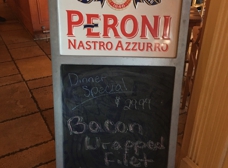 PERONI
NASTRO AZZURRO
Dinner
Special
Bacon
Wrapped
Filet